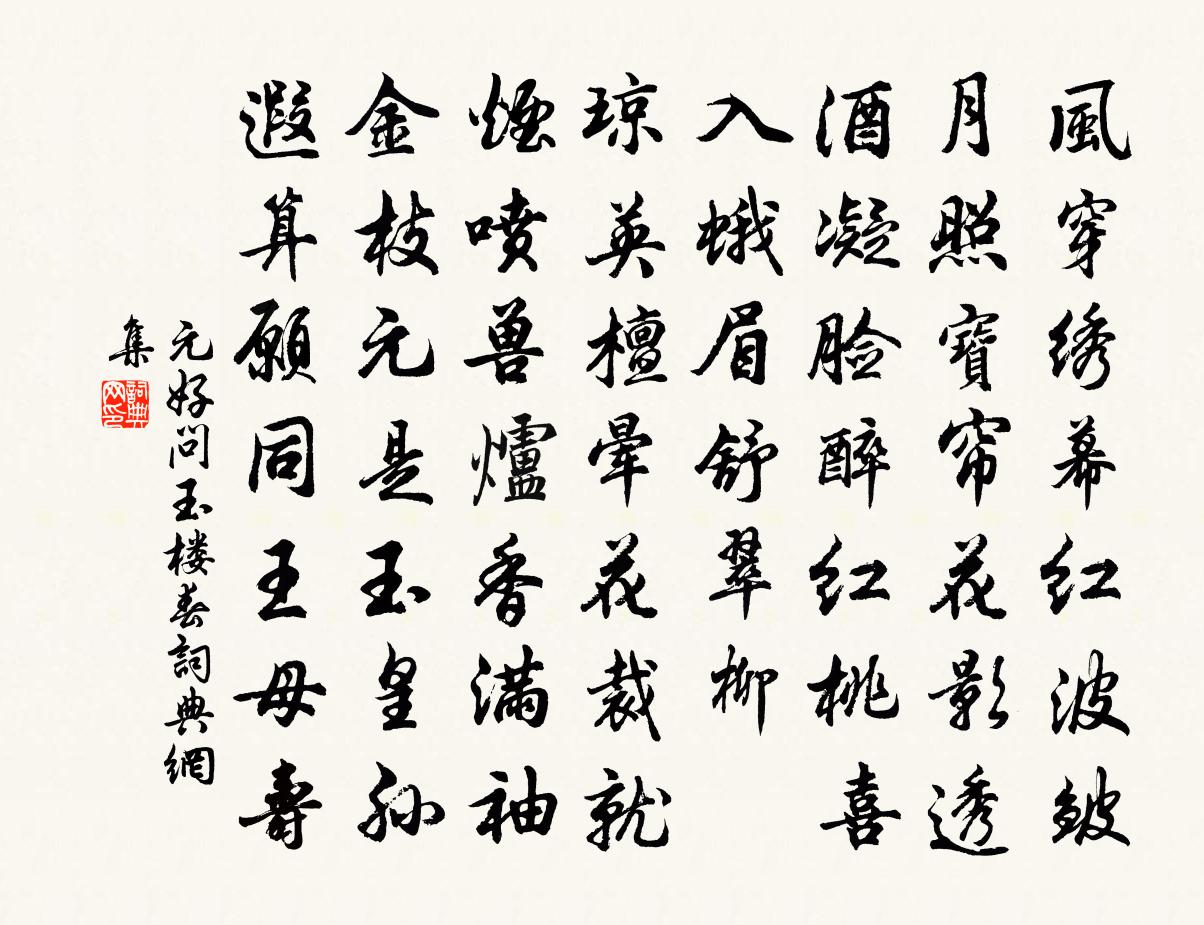 風穿绣幕红波皴
月照寶帘花影透
酒凝脸醉红桃喜
入蛾眉舒翠柳
琼英檀晕花裁就
煙喷兽爐香满袖
金枝元是玉皇孙
遐算願同王母壽
元好问玉楼春詞典網
集
詞典网印